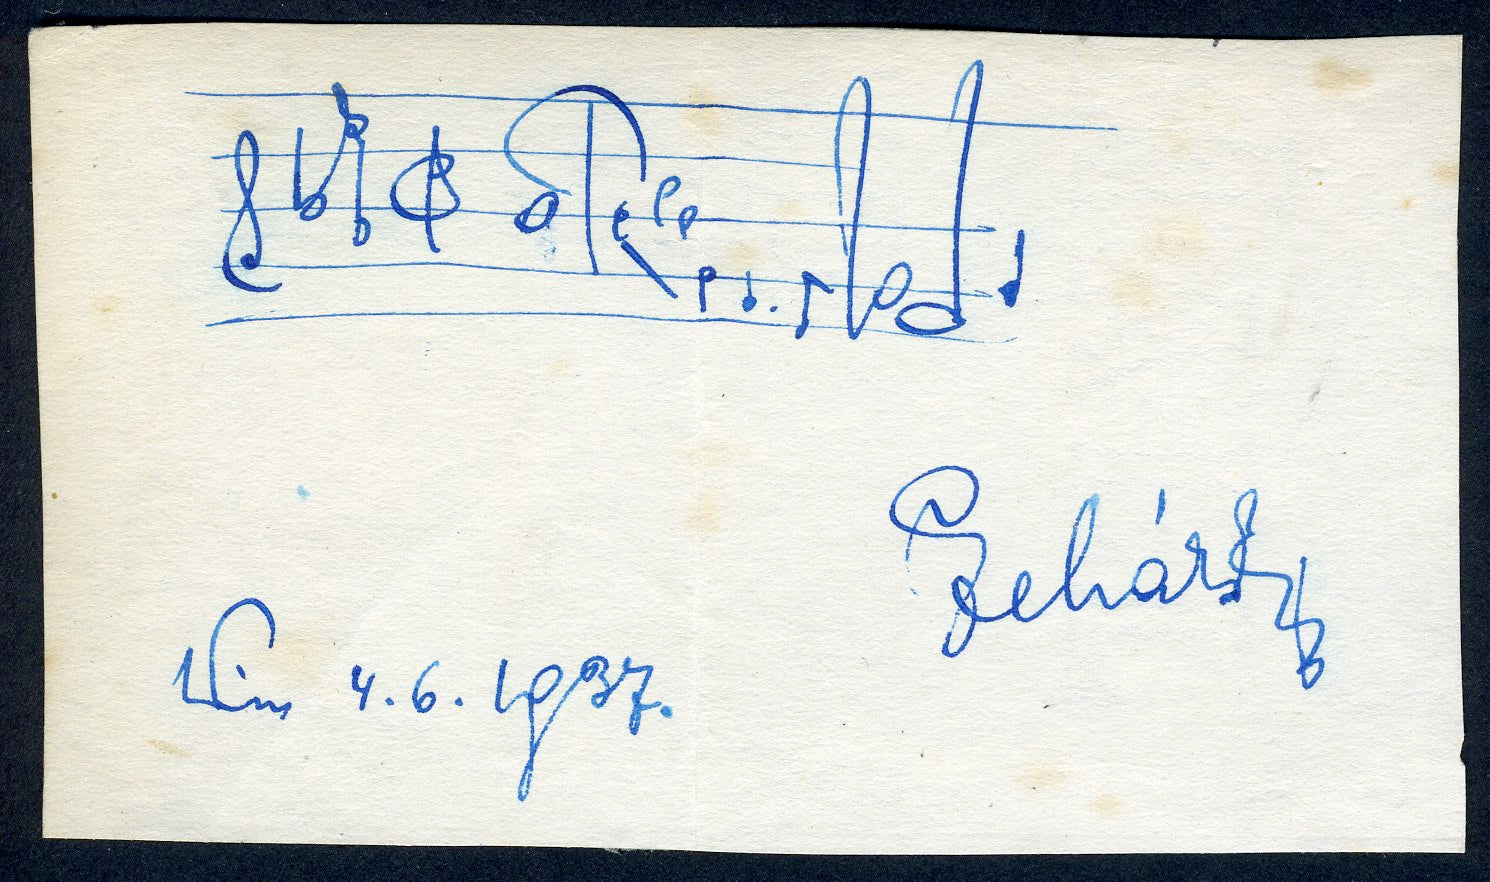 Lehár
Wien 4.6.1937.